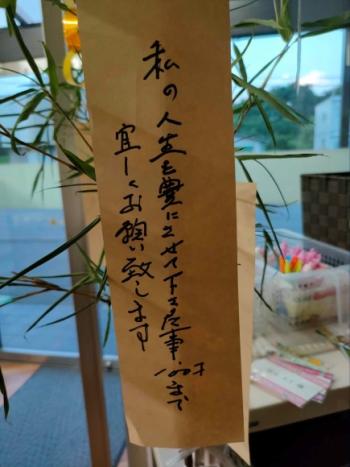 私の人生を豊にさせて下さる事
宜しくお願い致します